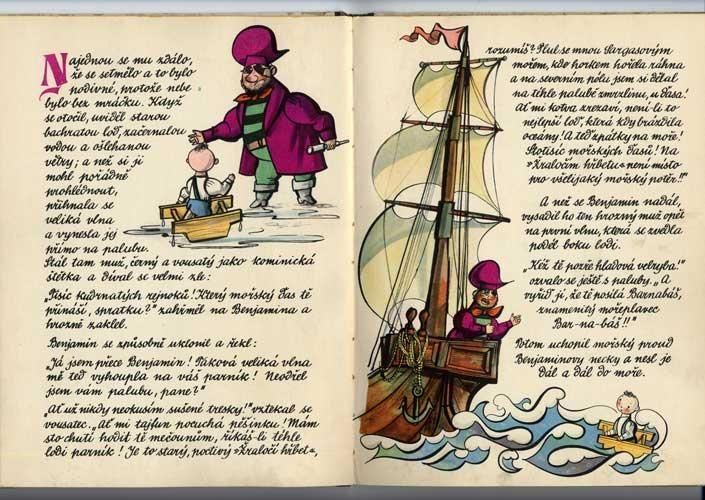 Najednou se mu zdálo,
že se setmělo a to bylo
podivné, protože nebe
bylo bez mráčku. Když
se otočil, uviděl starou
bachratou loď, začernalou
vodou a ošlehanou
větry; a než si ji
mohl pořádně
prohlédnout,
přihnala se
veliká vlna
a vynesla jej
přímo na palubu.
Stál tam muž, černý a vousatý jako kominická
štětka a díval se velmi zle:
„Tisíc kudrnatých rejnoků! Který mořský ďas tě
přináší, spratku?“ zahřměl na Benjamina a
hrozně zaklel.
Benjamin se způsobně uklonil a řekl:
„Já jsem přece Benjamin! Taková veliká vlna
mě teď vyhoupla na váš parník! Neodřel
jsem vám palubu, pane?“
„Ať už nikdy neokusím sušené tresky!“ vztekal se
vousatec. „Ať mi tajfun pocuchá pěšinku! Mám
sto chutí hodit tě mečounům, říkáš-li téhle
lodi parník! Je to starý, poctivý »Žraločí hřbet«,
rozumíš? Plul se mnou Sargasovým
mořem, kdy horkem hořela ráhna
a na severním pólu jsem si dělal
na téhle palubě zmrzlinu, u ďasa!
Ať mi kotva zrezaví, není-li to
nejlepší loď, která kdy brázdila
oceány! A teď zpátky na moře!
Stotisíc mořských ďasů! Na
»Žraločím hřbetu« není místo
pro všelijaký mořský potěr!!“
A než se Benjamin nadál,
vysadil ho ten hrozný muž opět
na první vlnu, která se zvedla
podél boku lodi.
„Kéž tě pozře hladová velryba!“
ozvalo se ještě s paluby. „A
vyřiď jí, že tě posílá Barnabáš,
znamenitý mořeplavec
Bar-na-báš!!“
Potom uchopil mořský proud
Benjaminovy necky a nesl je
dál a dál do moře.